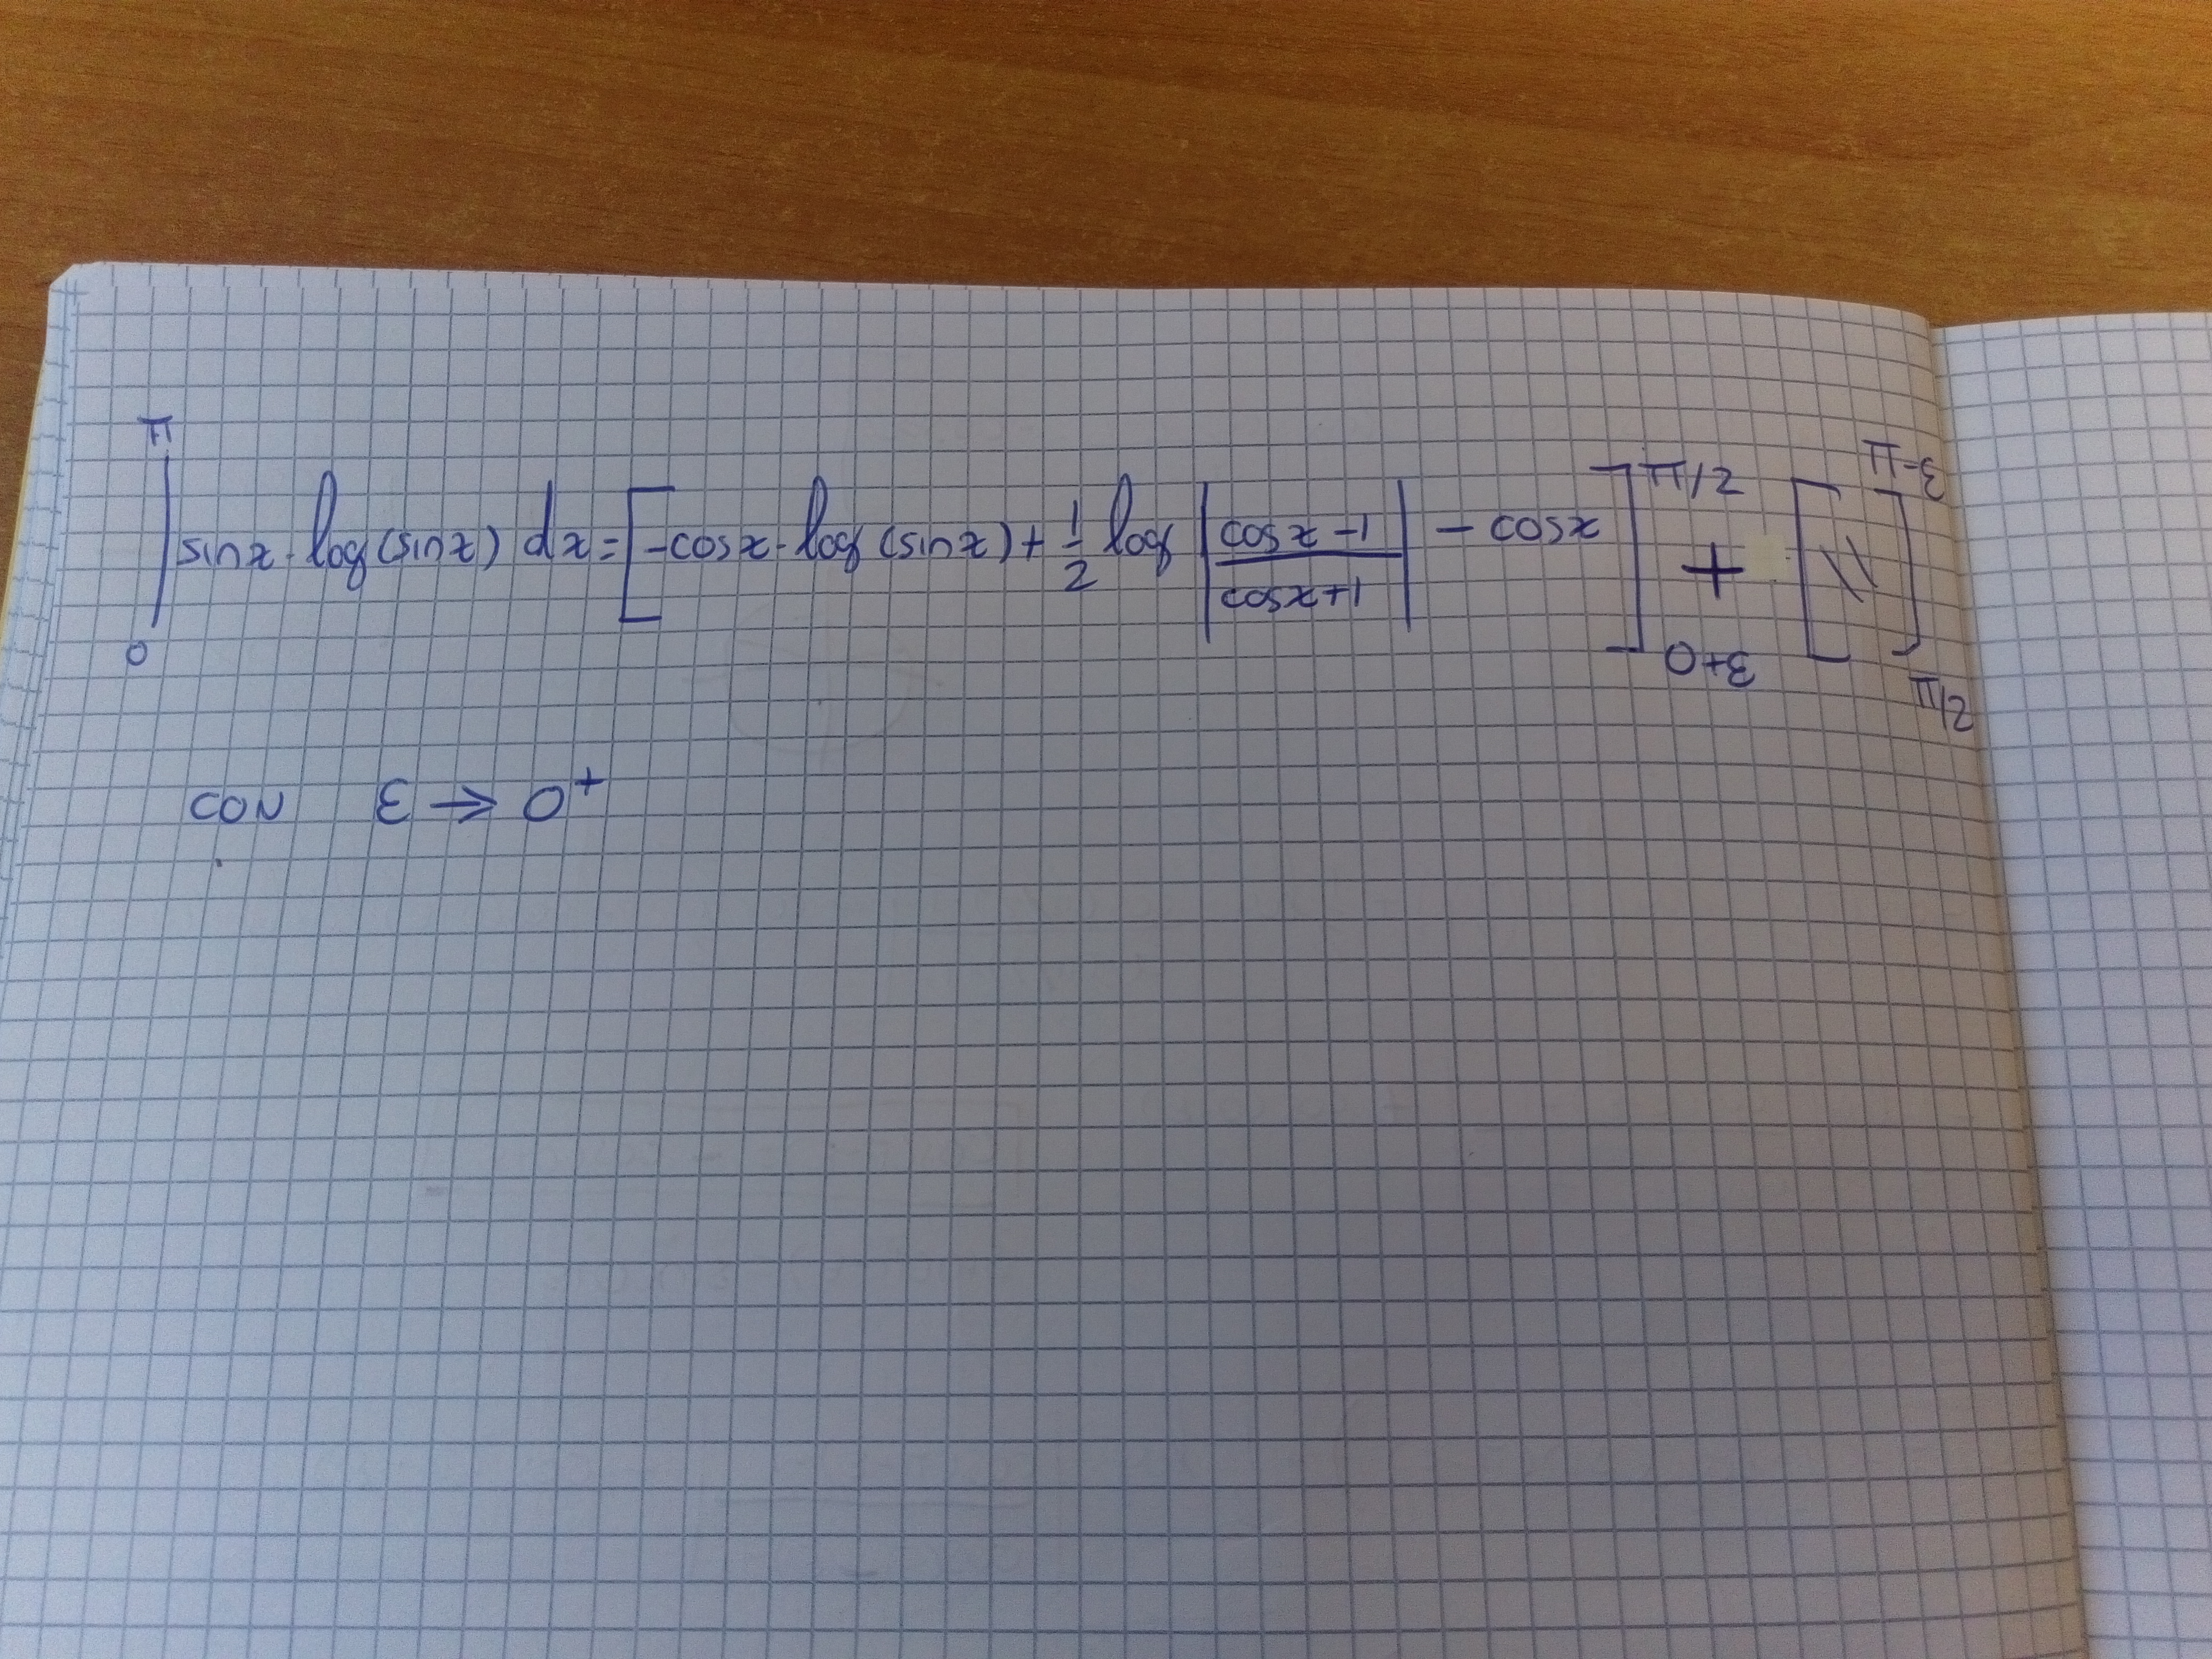 ∫₀^π sinx · log(sinx) dx = [-cosx · log(sinx) + 1/2 log |(cosx-1)/(cosx+1)| - cosx]_{0+ε}^{π/2} + [ \\ ]_{π/2}^{π-ε}
CON ε → 0⁺